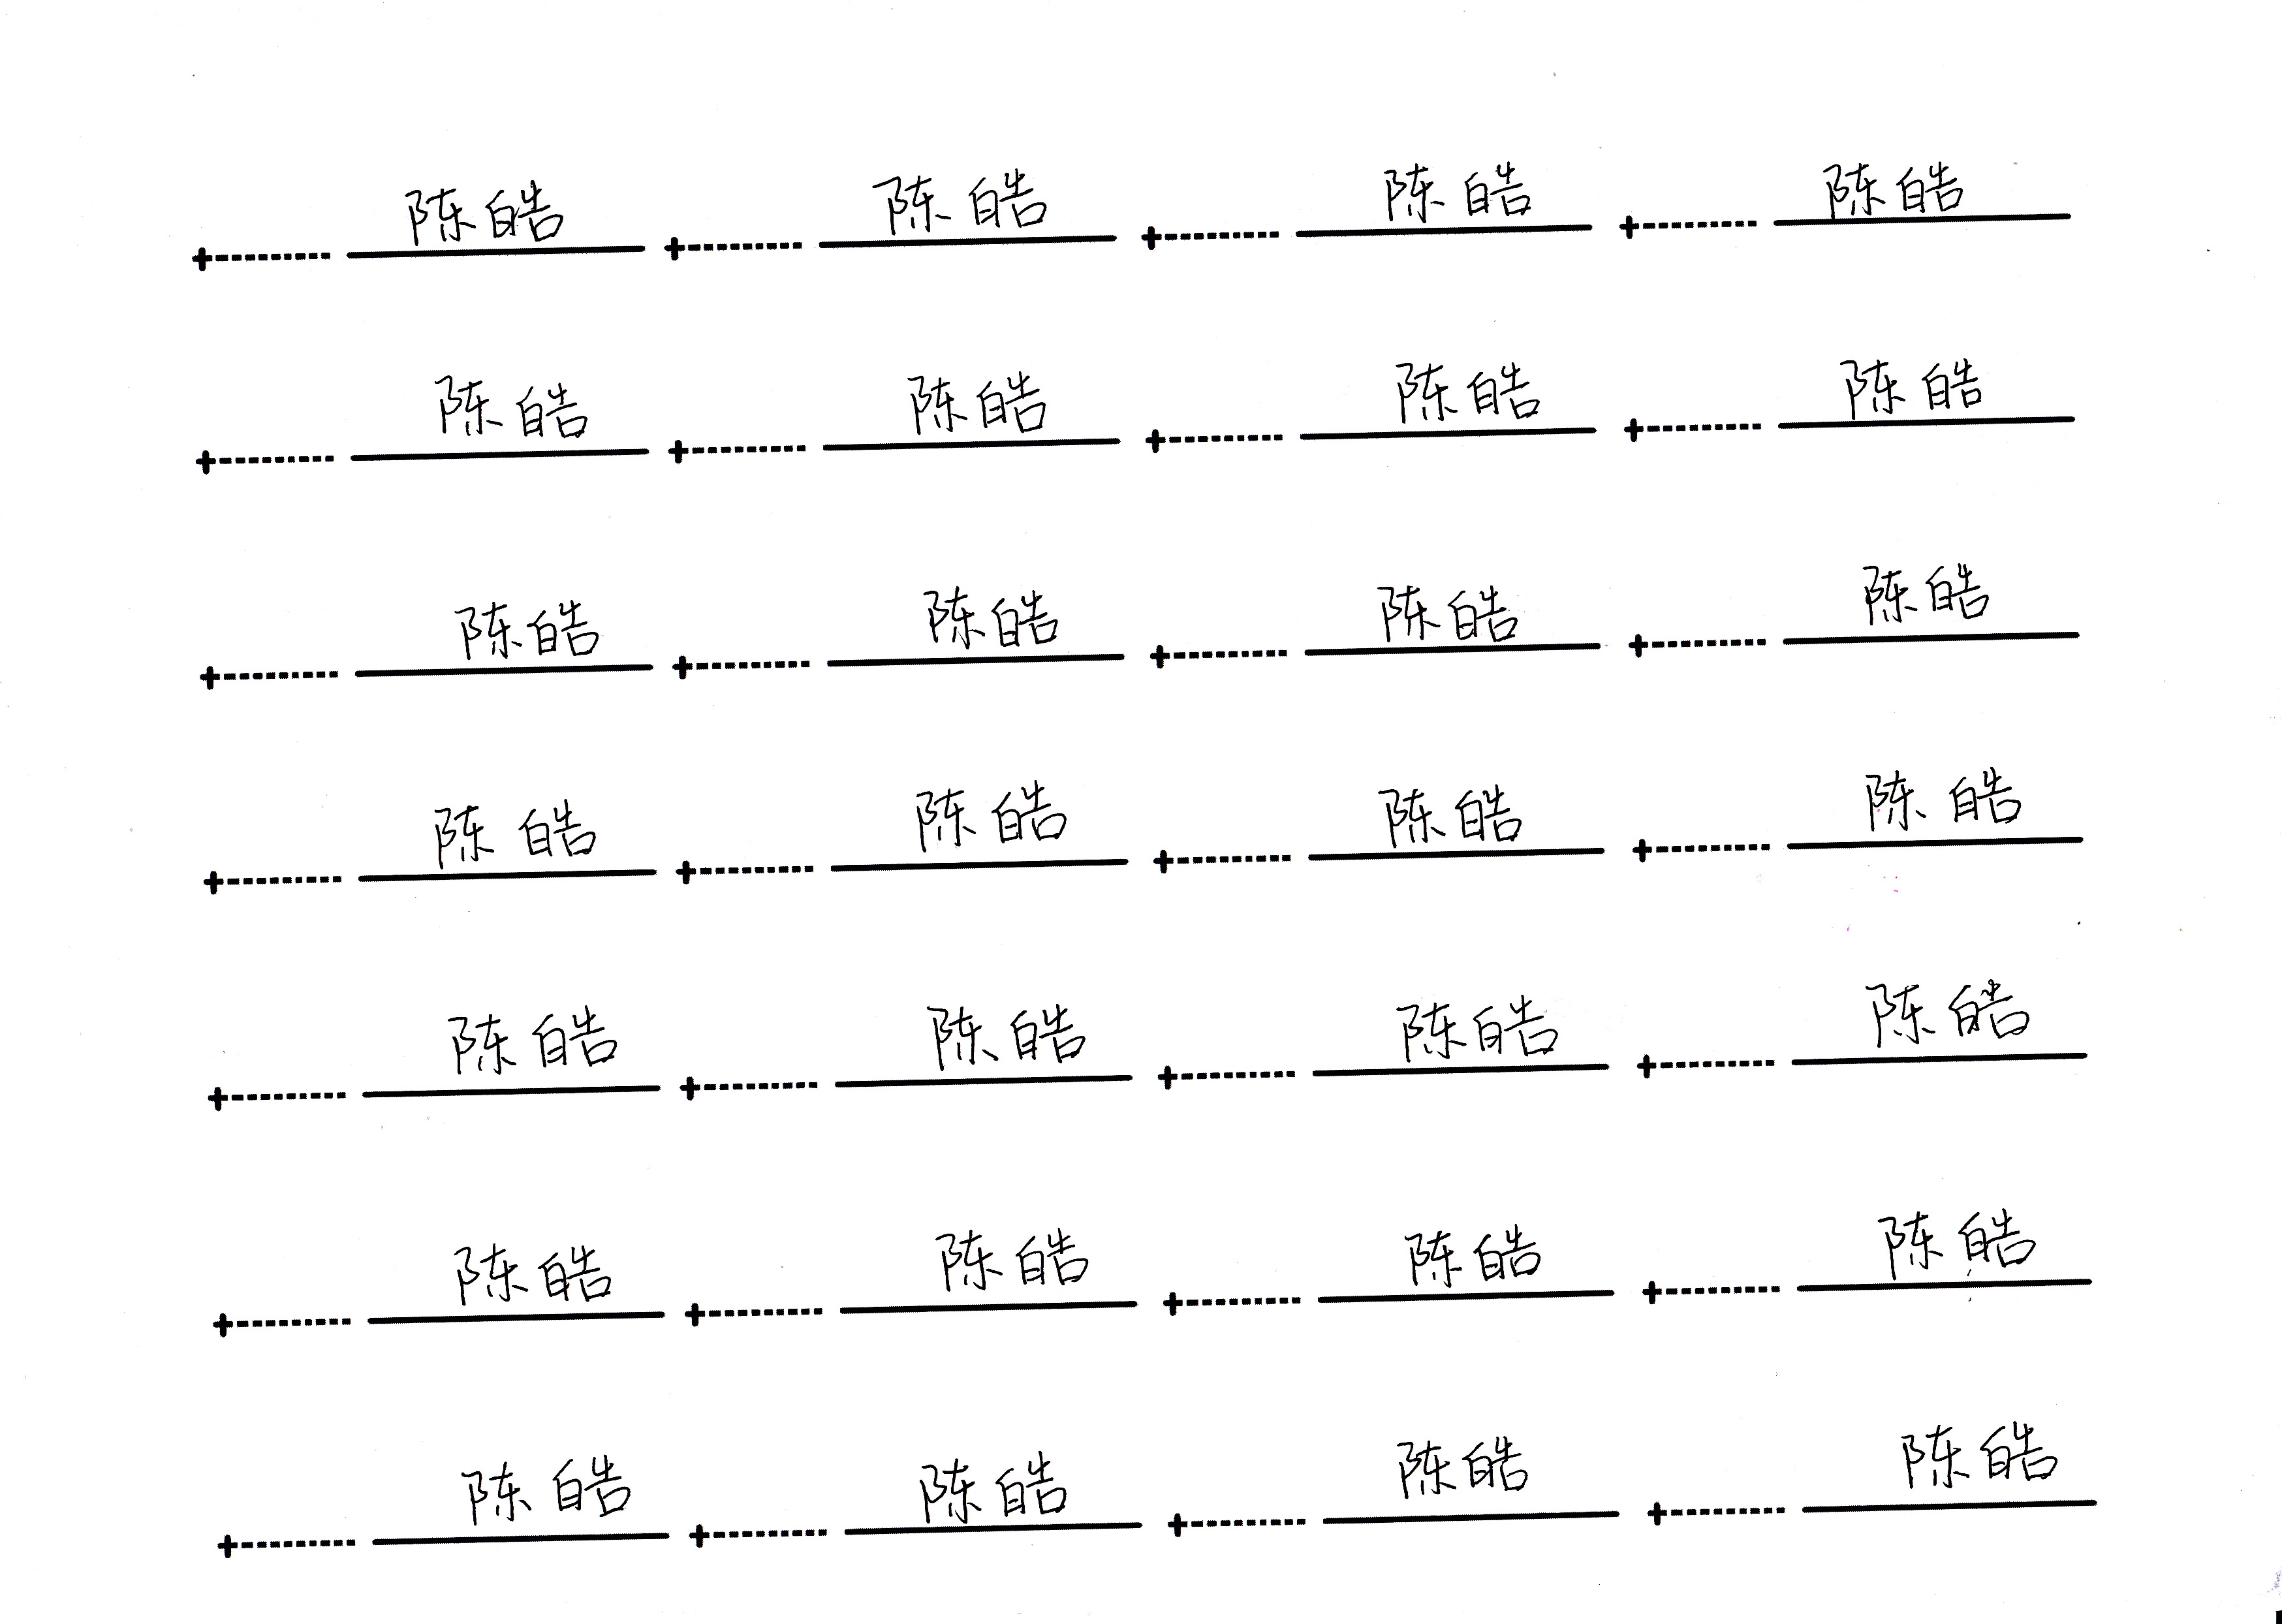 陈皓 陈皓 陈皓 陈皓
陈皓 陈皓 陈皓 陈皓
陈皓 陈皓 陈皓 陈皓
陈皓 陈皓 陈皓 陈皓
陈皓 陈皓 陈皓 陈皓
陈皓 陈皓 陈皓 陈皓
陈皓 陈皓 陈皓 陈皓